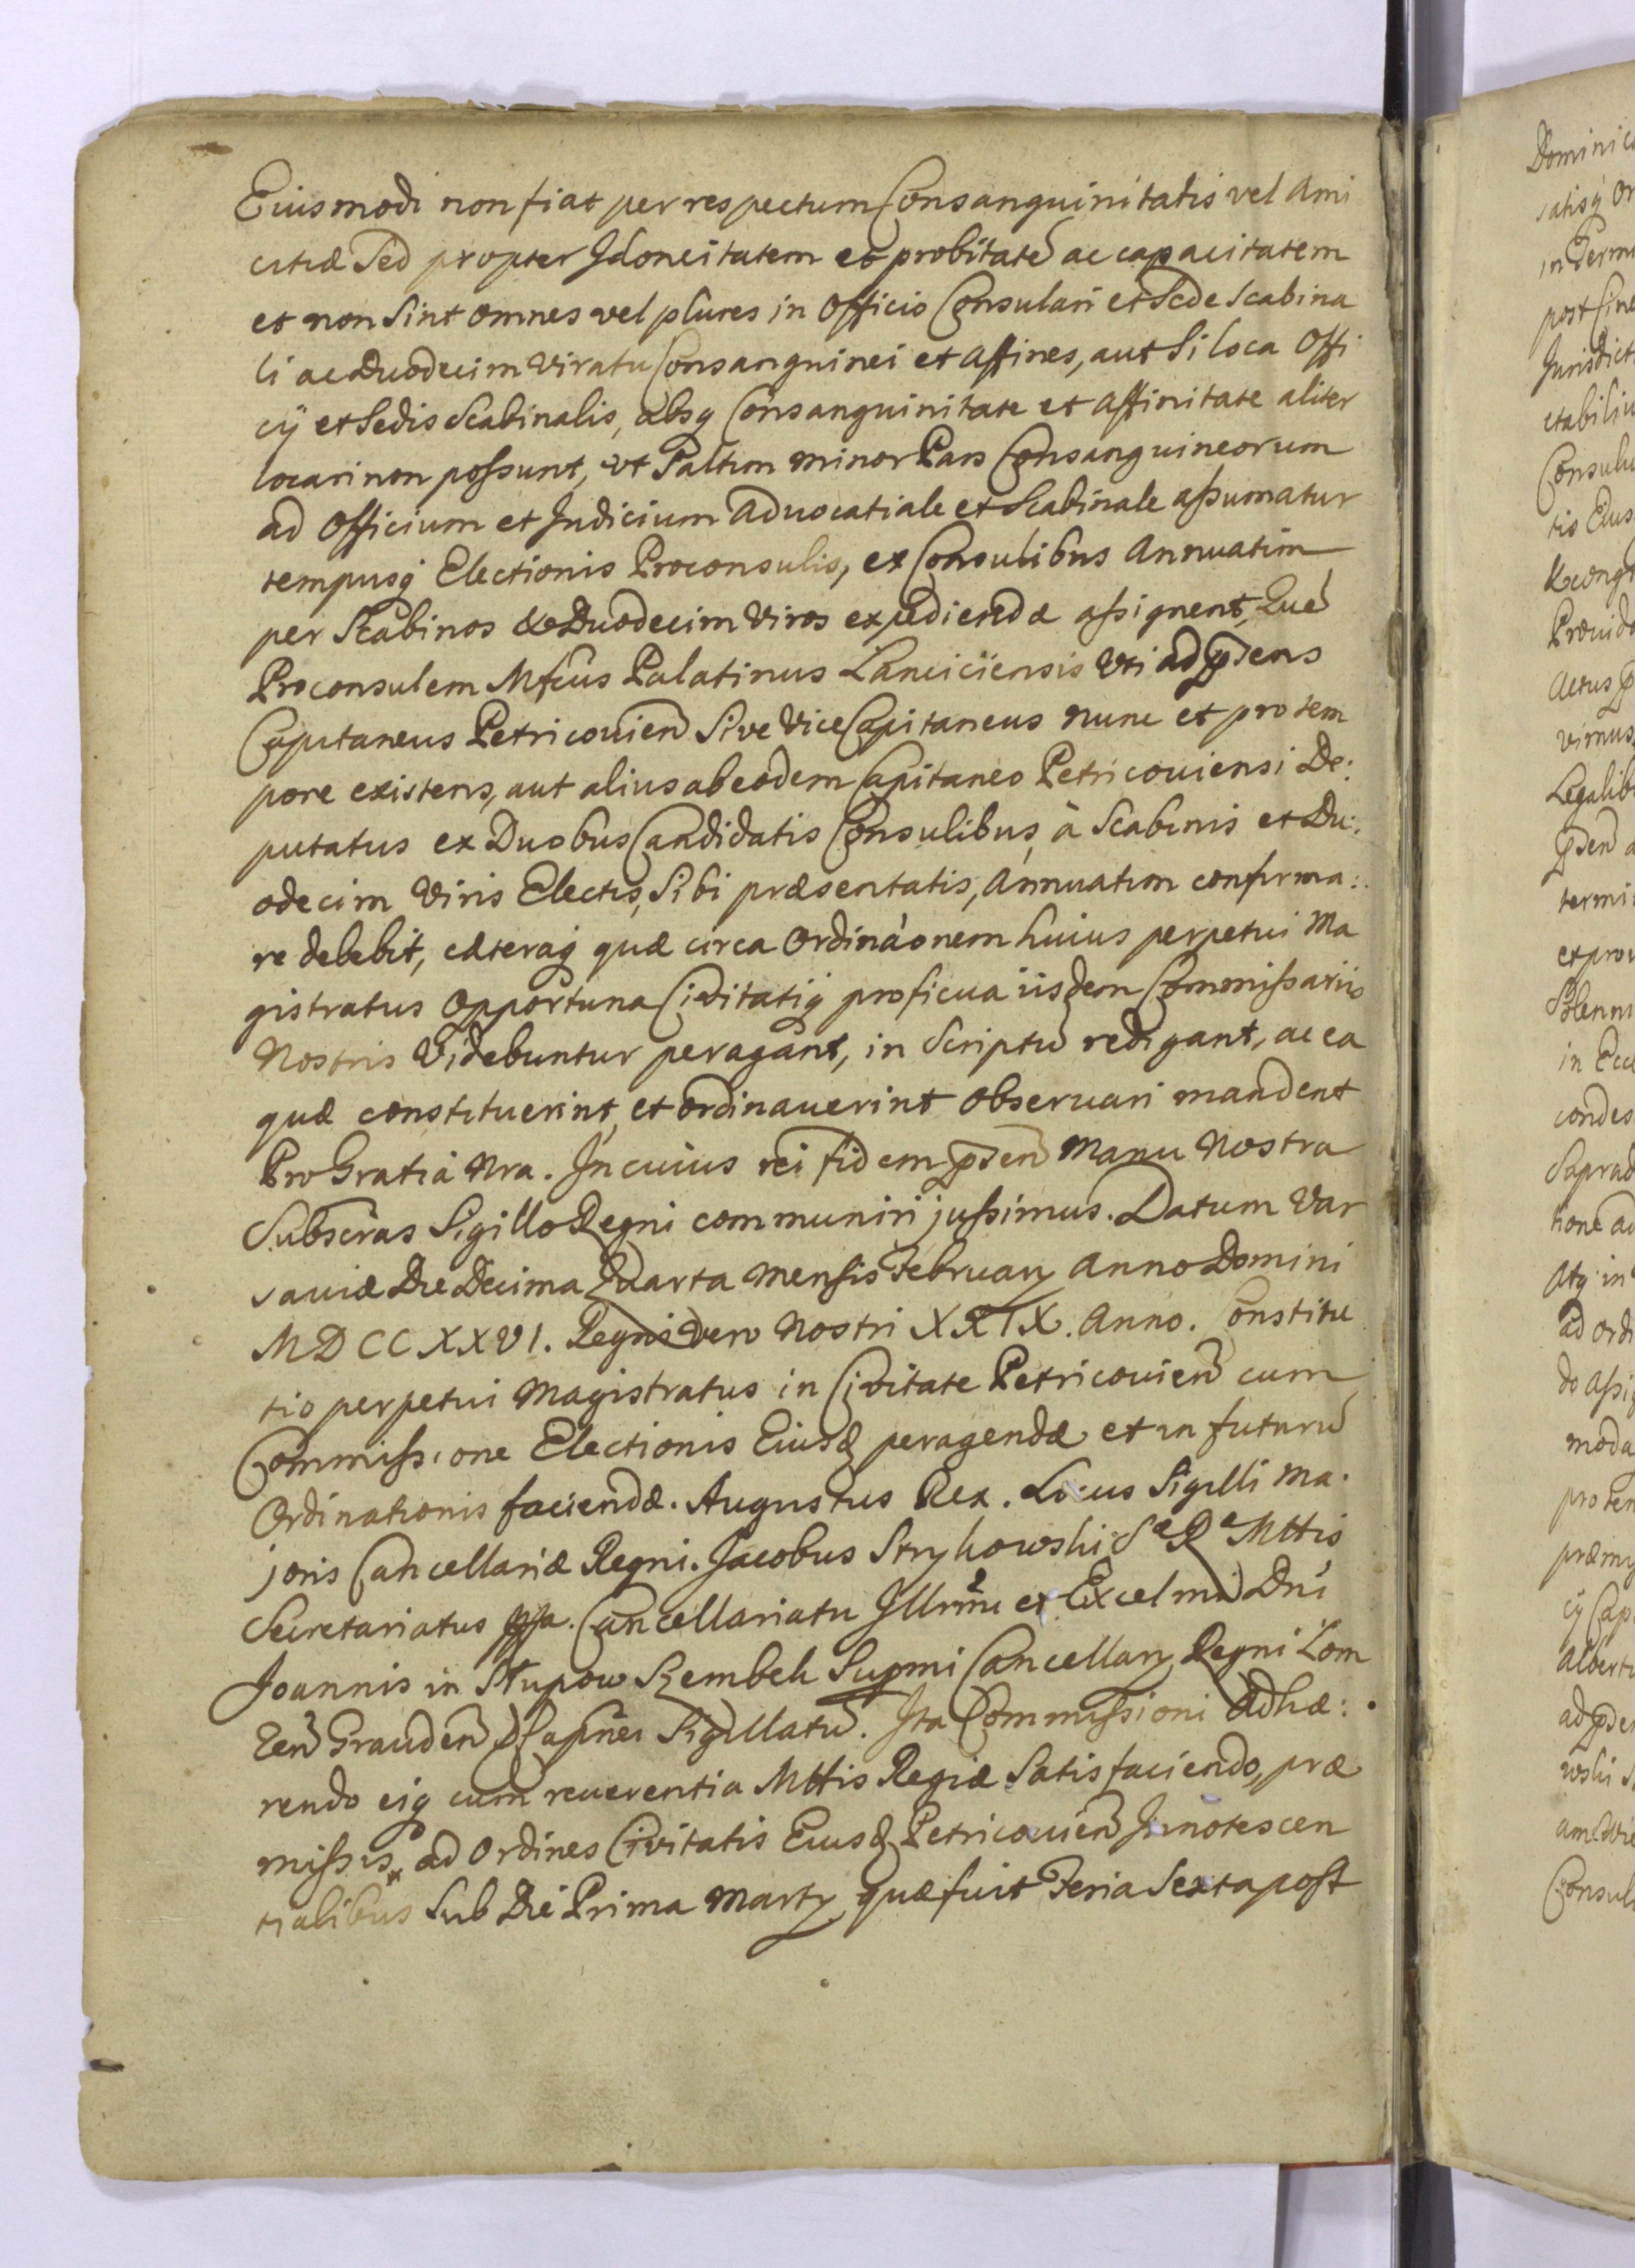 Eiusmodi non fiat per respectum Consanguinitatis vel Ami
citiæ Sed propter Idoneitatem et probitatē ac capacitatem
et non Sint omnes vel plures in Officio Consulari et Sede Scabina
li ac Duodecim Viratu Consanguinei et Affines, aut Si loca Offi
cÿ et Sedis Scabinalis, absq Consanguinitate et Affinitate aliter
locari non possunt, vt Saltim minor Pars Consanguineorum
ad Officium et Judicium Aduocatiale et Scabinale assumatur
tempusq Electionis Proconsulis, ex Consulibus Annuatim
per Scabinos & Duodecim Viros expediendæ assignent, Quē
Proconsulem Mfcus Palatinus Lanciciensis Vti ad pñs
Capitaneus Petricouien Sive Vice Capitaneus nunc et pro tem
pore existens, aut alius ab eodem Capitaneo Petricouiensi De:
putatus ex Duobus Candidatis Consulibus, à Scabinis et Du:
odecim Viris Electis, Sibi præsentatis, Annuatim confirma:
re debebit, cæteraq quæ circa Ordinaōnem huius perpetui Ma
gistratus Opportuna Civitatiq proficua iisdem Commissariis
Nostris Videbuntur peragant, in Scriptū redigant, ac ea
quæ constituerint, et ordinauerint observari mandent
Pro Gratia Nra. In cuius rei fidem pñs Manu Nostra
Subscras Sigillo Regni communiri jussimus. Datum Var
saviæ Die Decima Quarta Mensis February Anno Domini
MDCCXXVI. Regni vero Nostri XXIX. Anno. Constitu
tio perpetui Magistratus in Civitate Petricouien cum
Commissione Electionis Eiusd peragendæ et in futurū
Ordinationis faciendæ. Augustus Rex. Locus Sigilli Ma.
joris Cancellariæ Regni. Jacobus Strykowski S R Mttis
Secretariatus Cancellariatu Illrmi et Excelmi Dni
Joannis in Słupow Szembek Supmi Cancellary Regni Lom
zen Grauden Capnei Sigillatū. Ita Commissioni Adhæ:
rendo eiq cum reuerentia Mttis Regiæ Satisfaciendo, præ
missis ad Ordines Civitatis Eiusd Petricouien Innotescen
tialibus Sub Die Prima Marty quæ fuit Feria Sexta post